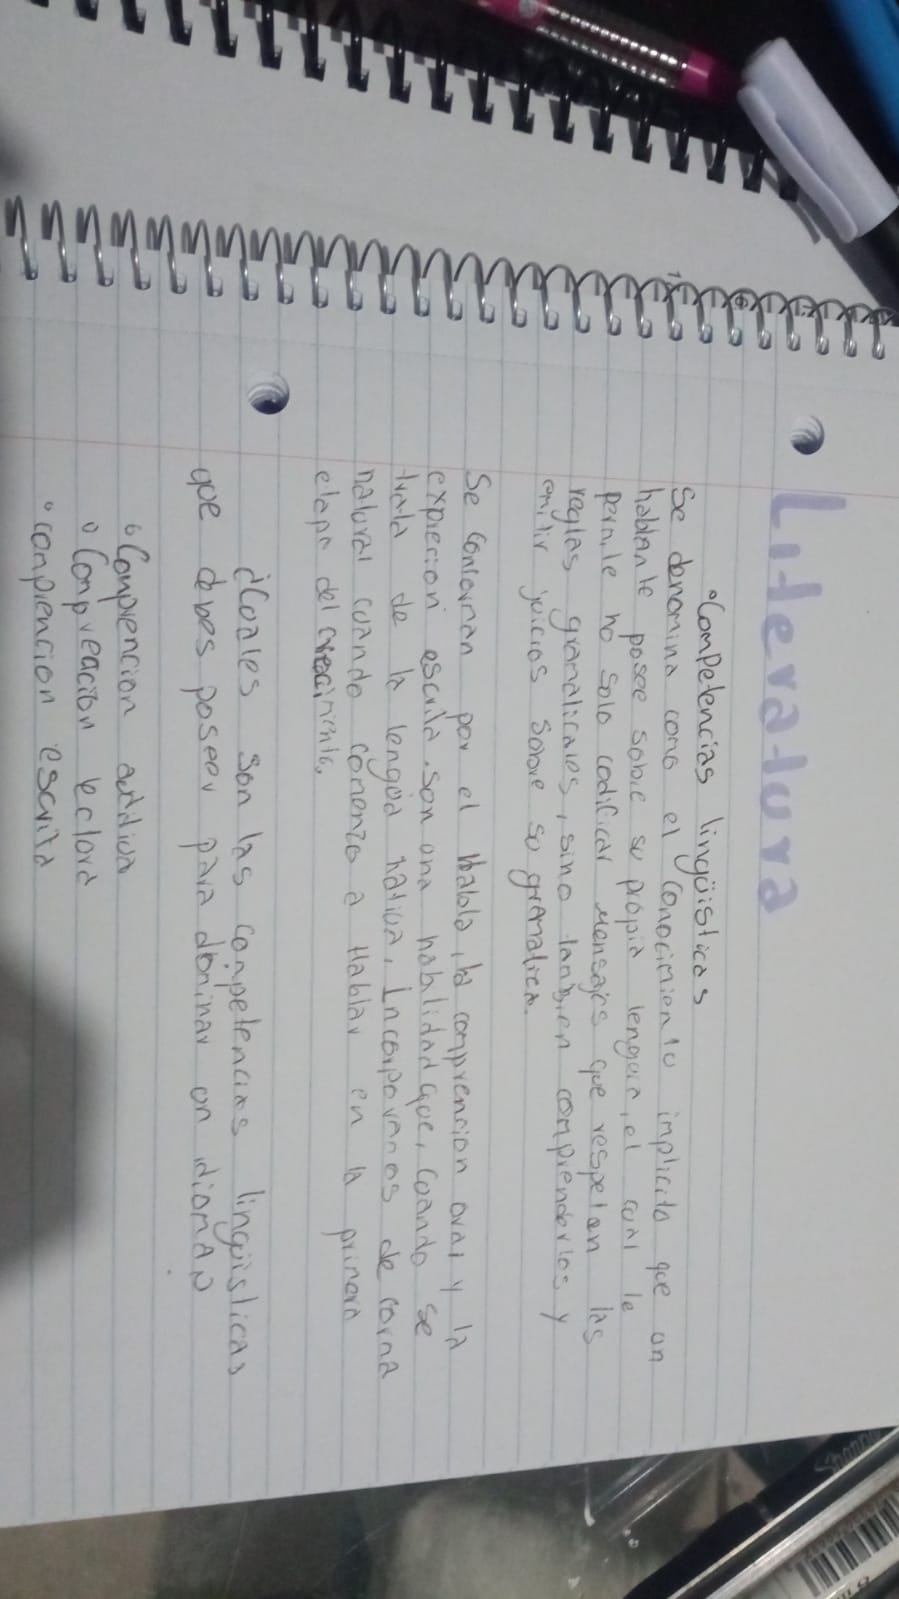 Literatura
°Competencias lingüisticas
Se denomina como el conocimiento implicito que un
hablante posee sobre su propia lengua, el cual le
permite no solo codificar mensajes que respetan las
reglas gramaticales, sino tambien comprenderlos y
emitir juicios sobre su gramatica.
Se conforman por el Habla, la comprencion oral y la
exprecion escrita. Son una habilidad que, cuando se
trata de la lengua nativa, Incorporamos de forma
natural cuando comenzo a Hablar en la primera
etapa del crecimiento.
¿Cuales son las competencias lingüisticas
que debes poseer para dominar un idioma?
° Comprencion auditiva
° Compreación lectora
° comprencion escrita